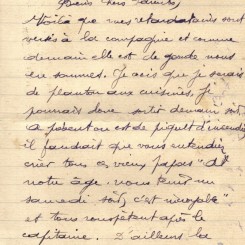 Biens chers Parents,
Voilà que mes retardataires sont
versés à la compagnie et comme
demain elle est de garde nous
en sommes. Je crois que je serais
de planton aux cuisines, je
pourrais donc sortir demain soir
a présent on est de piquet d'incendie
il faudrait que vous entendiez
crier tous ces vieux papas "à
notre âge. nous tenir un
samedi soir, c'est incroyable"
et tous rouspètent après le
capitaine. D'ailleurs la